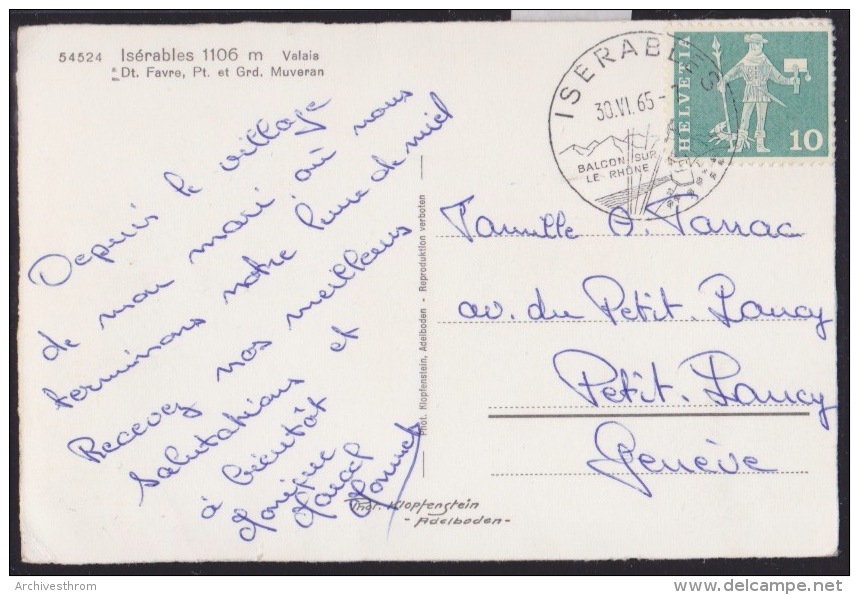 54524 Isérables 1106 m Valais
Dt. Favre, Pt. et Grd. Muveran
ISERABLES
30.VI.65
BALCON SUR
LE RHÔNE
HELVETIA
10
Depuis le village
de mon mari où nous
terminons notre lune de miel
Recevez nos meilleurs
salutations et
à bientôt
Marcel
Phot. Klopfenstein, Adelboden - Reproduktion verboten
Famille
av. du Petit-Lancy
Petit-Lancy
Genève
Phot. Klopfenstein
- Adelboden -
Archivesthrom
delcampe.net